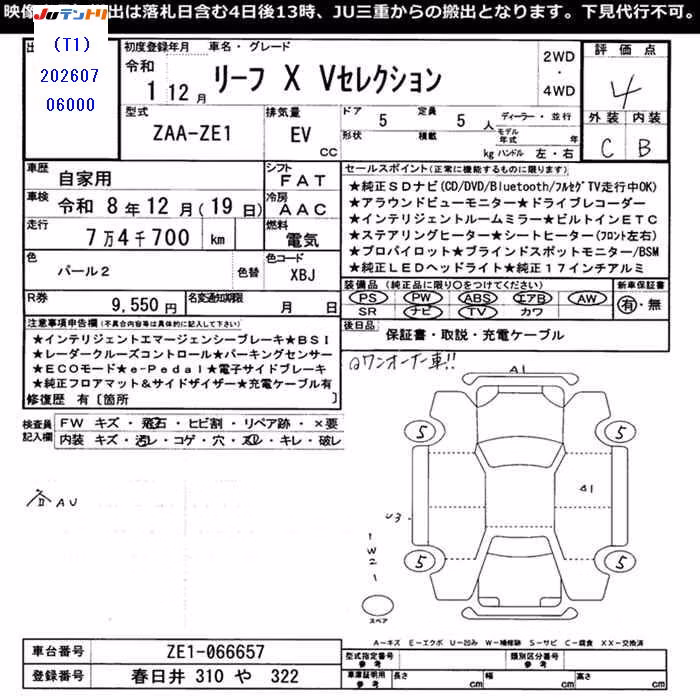 映像 出は落札日含む4日後13時、JU三重からの搬出となります。下見代行不可。
JUテントリ
(T1)
202607
06000
出
初度登録年月 車名・グレード
令和
1 12月
リーフ X Vセレクション
2WD
・
4WD
評価点
4
外装 内装
C B
型式
ZAA-ZE1
排気量
EV
cc
ドア 5 定員 5人
形状 積載 kg
ディーラー・並行
モデル年式 年
ハンドル 左・右
車歴
自家用
シフト
FAT
車検
令和 8年12月(19日)
冷房
AAC
走行
7万4千700 km
燃料
電気
色
パール2
色替
色コード
XBJ
R券
9,550円
名変通知期限
月 日
セールスポイント(正常に機能するものに限ります)
★純正SDナビ(CD/DVD/Bluetooth/フルセグTV走行中OK)
★アラウンドビューモニター★ドライブレコーダー
★インテリジェントルームミラー★ビルトインETC
★ステアリングヒーター★シートヒーター(フロント左右)
★プロパイロット★ブラインドスポットモニター/BSM
★純正LEDヘッドライト★純正17インチアルミ
装備品(純正品に限り○をつけてください)
PS PW ABS エアB AW
SR ナビ TV カワ
新車保証書
有・無
後日品
保証書・取説・充電ケーブル
注意事項申告欄(不具合内容等は具体的に記入して下さい)
★インテリジェントエマージェンシーブレーキ★BSI
★レーダークルーズコントロール★パーキングセンサー
★ECOモード★e-Pedal★電子サイドブレーキ
★純正フロアマット&サイドザイザー★充電ケーブル有
修復歴 有〔箇所 〕
◎ワンオーナー車!!
検査員記入欄
FW キズ・飛石・ヒビ割・リペア跡・×要
内装 キズ・汚レ・コゲ・穴・スレ・キレ・破レ
AU
A1
5
5
5
5
A1
U3
1
W2
1
スペア
A-キズ E-エクボ U-凹み W-補修跡 S-サビ C-腐食 XX-交換済
車台番号 ZE1-066657
登録番号 春日井 310 や 322
型式指定番号 参考
類別区分番号 参考
車庫証明用 参考
長さ cm 幅 cm 高さ cm